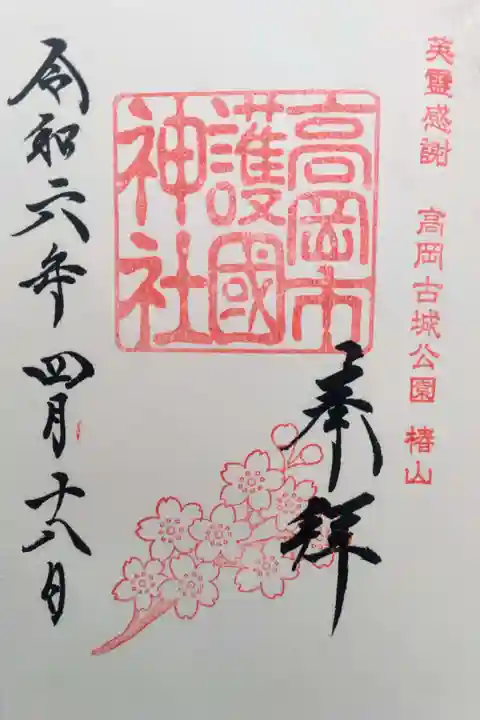 英霊感謝 高岡古城公園 椿山
高岡市
護國
神社
奉拝
令和六年四月十八日